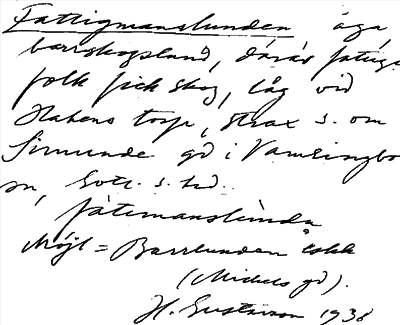 Fattigmanslunden äga
barrskogslund, därav fattiga
folk fick skog, låg vid
Hakens torp, strax s. om
Simunde gd i Vamlingbo
sn, Gotl. s. hd.
fátimanslúndn
Möjl = Barrlunden
(Nickels gd).
H. Gustavson 1938